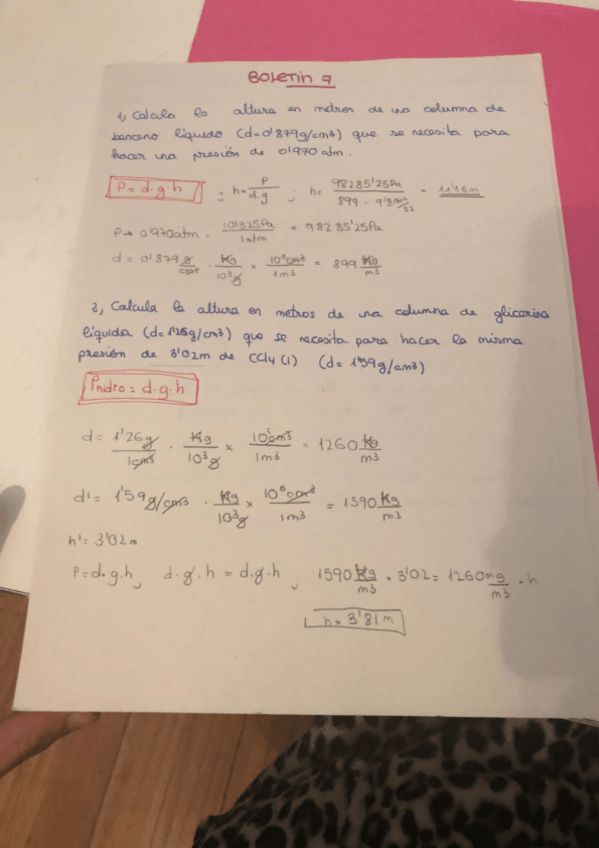 Boletin 7
1, Calcula la altura en metros de una columna de
benceno líquido (d=0'879g/cm³) que se necesita para
hacer una presión de 0'970 atm.
P = d·g·h ; h = P/d·g ; h = 98285'25Pa / 899 · 9'8 = 11'16m
P → 0'970atm · 101325Pa/1atm = 98285'25Pa
d = 0'879 g/cm³ · Kg/10³g × 10⁶cm³/1m³ = 899 Kg/m³
2, Calcula la altura en metros de una columna de glicerina
líquida (d=1'26g/cm³) que se necesita para hacer la misma
presión de 3'02m de CCl4 (l) (d= 1'59g/cm³)
Phidro = d·g·h
d = 1'26g/1cm³ · Kg/10³g × 10⁶cm³/1m³ = 1260 Kg/m³
d' = 1'59g/cm³ · Kg/10³g × 10⁶cm³/1m³ = 1590 Kg/m³
h' = 3'02m
P = d·g·h ; d·g·h = d·g·h ; 1590 Kg/m³ · 3'02 = 1260 mg/m³ · h
h = 3'81 m